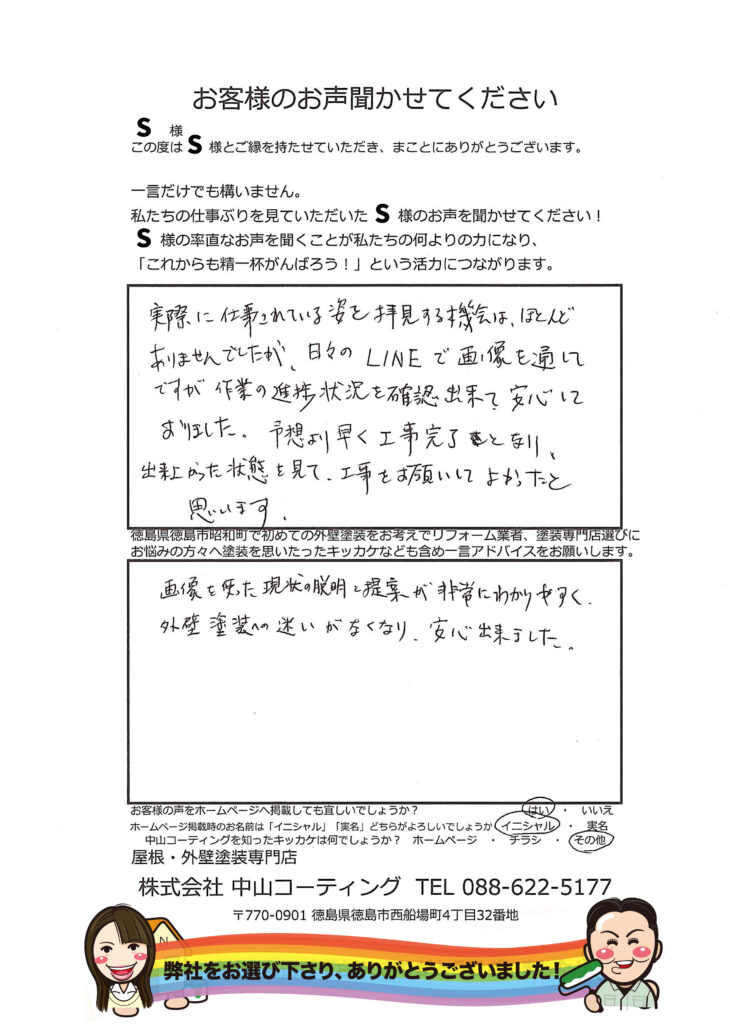 お客様のお声聞かせてください
S 様
この度は S 様とご縁を持たせていただき、まことにありがとうございます。
一言だけでも構いません。
私たちの仕事ぶりを見ていただいた S 様のお声を聞かせてください！
S 様の率直なお声を聞くことが私たちの何よりの力になり、
「これからも精一杯がんばろう！」という活力につながります。
実際に仕事されている姿を拝見する機会は、ほとんど
ありませんでしたが、日々のLINEで画像を通して
ですが作業の進捗状況を確認出来て安心して
おりました。予想より早く工事完了となり、
出来上がった状態を見て、工事をお願いしてよかったと
思います。
徳島県徳島市昭和町で初めての外壁塗装をお考えでリフォーム業者、塗装専門店選びに
お悩みの方々へ塗装を思いたったキッカケなども含め一言アドバイスをお願いします。
画像を使った現状の説明と提案が非常にわかりやすく、
外壁塗装への迷いがなくなり、安心出来ました。
お客様の声をホームページへ掲載しても宜しいでしょうか？ はい ・ いいえ
ホームページ掲載時のお名前は「イニシャル」「実名」どちらがよろしいでしょうか イニシャル ・ 実名
中山コーティングを知ったキッカケは何でしょうか？ ホームページ ・ チラシ ・ その他
屋根・外壁塗装専門店
株式会社 中山コーティング TEL 088-622-5177
〒770-0901 徳島県徳島市西船場町4丁目32番地
N
弊社をお選び下さり、ありがとうございました！